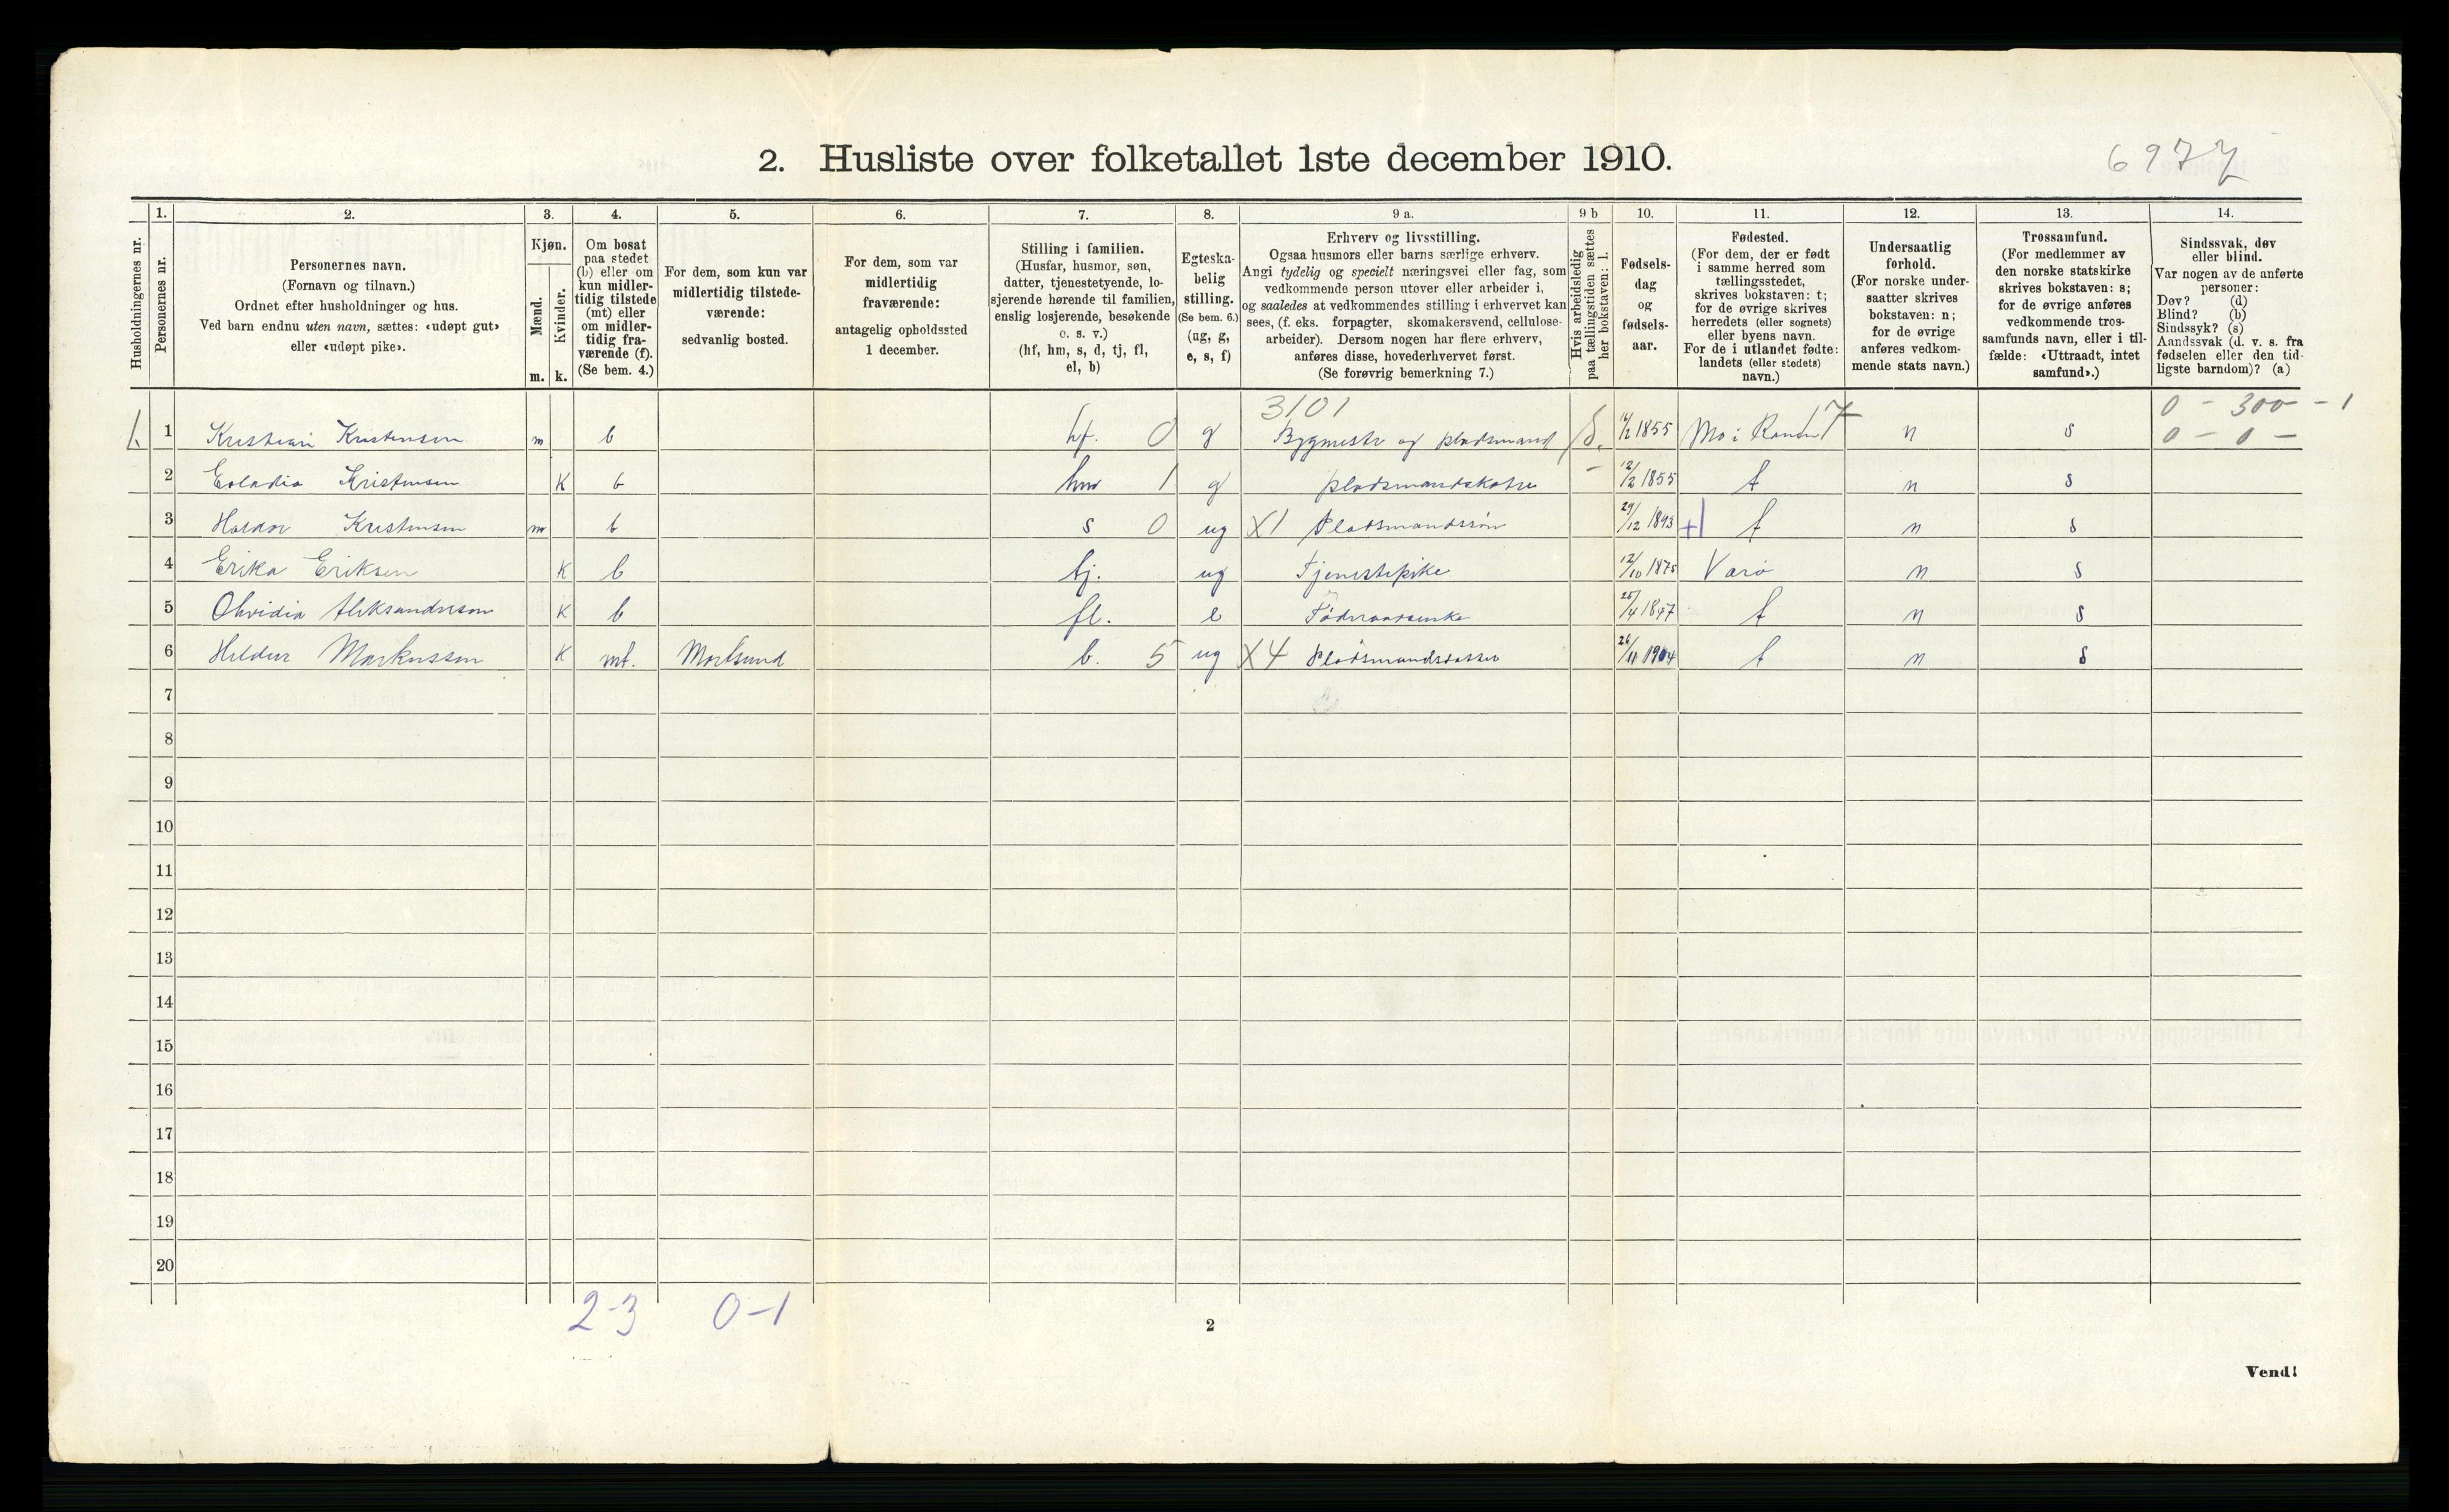 2. Husliste over folketallet 1ste december 1910.
6977
1. 2. 3. 4. 5. 6. 7. 8. 9 a. 9 b 10. 11. 12. 13. 14.
Husholdningernes nr.
Personernes nr.
Personernes navn.
(Fornavn og tilnavn.)
Ordnet efter husholdninger og hus.
Ved barn endnu uten navn, sættes: «udøpt gut»
eller «udøpt pike».
Kjøn.
Mænd.
Kvinder.
m. k.
Om bosat
paa stedet
(b) eller om
kun midler-
tidig tilstede
(mt) eller
om midler-
tidig fra-
værende (f).
(Se bem. 4.)
For dem, som kun var
midlertidig tilstede-
værende:
sedvanlig bosted.
For dem, som var
midlertidig
fraværende:
antagelig opholdssted
1 december.
Stilling i familien.
(Husfar, husmor, søn,
datter, tjenestetyende, lo-
sjerende hørende til familien,
enslig losjerende, besøkende
o. s. v.)
(hf, hm, s, d, tj, fl,
el, b)
Egteska-
belig
stilling.
(Se bem. 6.)
(ug, g,
e, s, f)
Erhverv og livsstilling.
Ogsaa husmors eller barns særlige erhverv.
Angi tydelig og specielt næringsvei eller fag, som
vedkommende person utøver eller arbeider i,
og saaledes at vedkommendes stilling i erhvervet kan
sees, (f. eks. forpagter, skomakersvend, cellulose-
arbeider). Dersom nogen har flere erhverv,
anføres disse, hovederhvervet først.
(Se forøvrig bemerkning 7.)
Hvis arbeidsledig
paa tællingstiden sættes
her bokstaven: l.
Fødsels-
dag
og
fødsels-
aar.
Fødested.
(For dem, der er født
i samme herred som
tællingsstedet,
skrives bokstaven: t;
for de øvrige skrives
herredets (eller sognets)
eller byens navn.
For de i utlandet fødte:
landets (eller stedets)
navn.)
Undersaatlig
forhold.
(For norske under-
saatter skrives
bokstaven: n;
for de øvrige
anføres vedkom-
mende stats navn.)
Trossamfund.
(For medlemmer av
den norske statskirke
skrives bokstaven: s;
for de øvrige anføres
vedkommende tros-
samfunds navn, eller i til-
fælde: «Uttraadt, intet
samfund».)
Sindssvak, døv
eller blind.
Var nogen av de anførte
personer:
Døv? (d)
Blind? (b)
Sindssyk? (s)
Aandssvak (d. v. s. fra
fødselen eller den tid-
ligste barndom)? (a)
3101 0 - 300 - 1
1 Kristian Kristensen m b hf. 0 g Bygmestr og pladsmand 1855 Mo i Ranen 7 n s 0 - 0 -
2 Kristensen K b hm 1 g pladsmandskone 12/2 1855 t n s
3 Haldor Kristensen m b s 0 ug X1 Pladsmandssøn 29/12 1893 +1 t n s
4 Erika Eriksen K b tj. ug Tjenestepike 12/10 1875 Værö n s
5 Aleksandersen K b fl. e 25/4 1847 t n s
6 Hildur Markussen K mt. Mortsund b. 5 ug X4 26/11 1904 t n s
7
8
9
10
11
12
13
14
15
16
17
18
19
20
2-3 0-1
2
Vend!